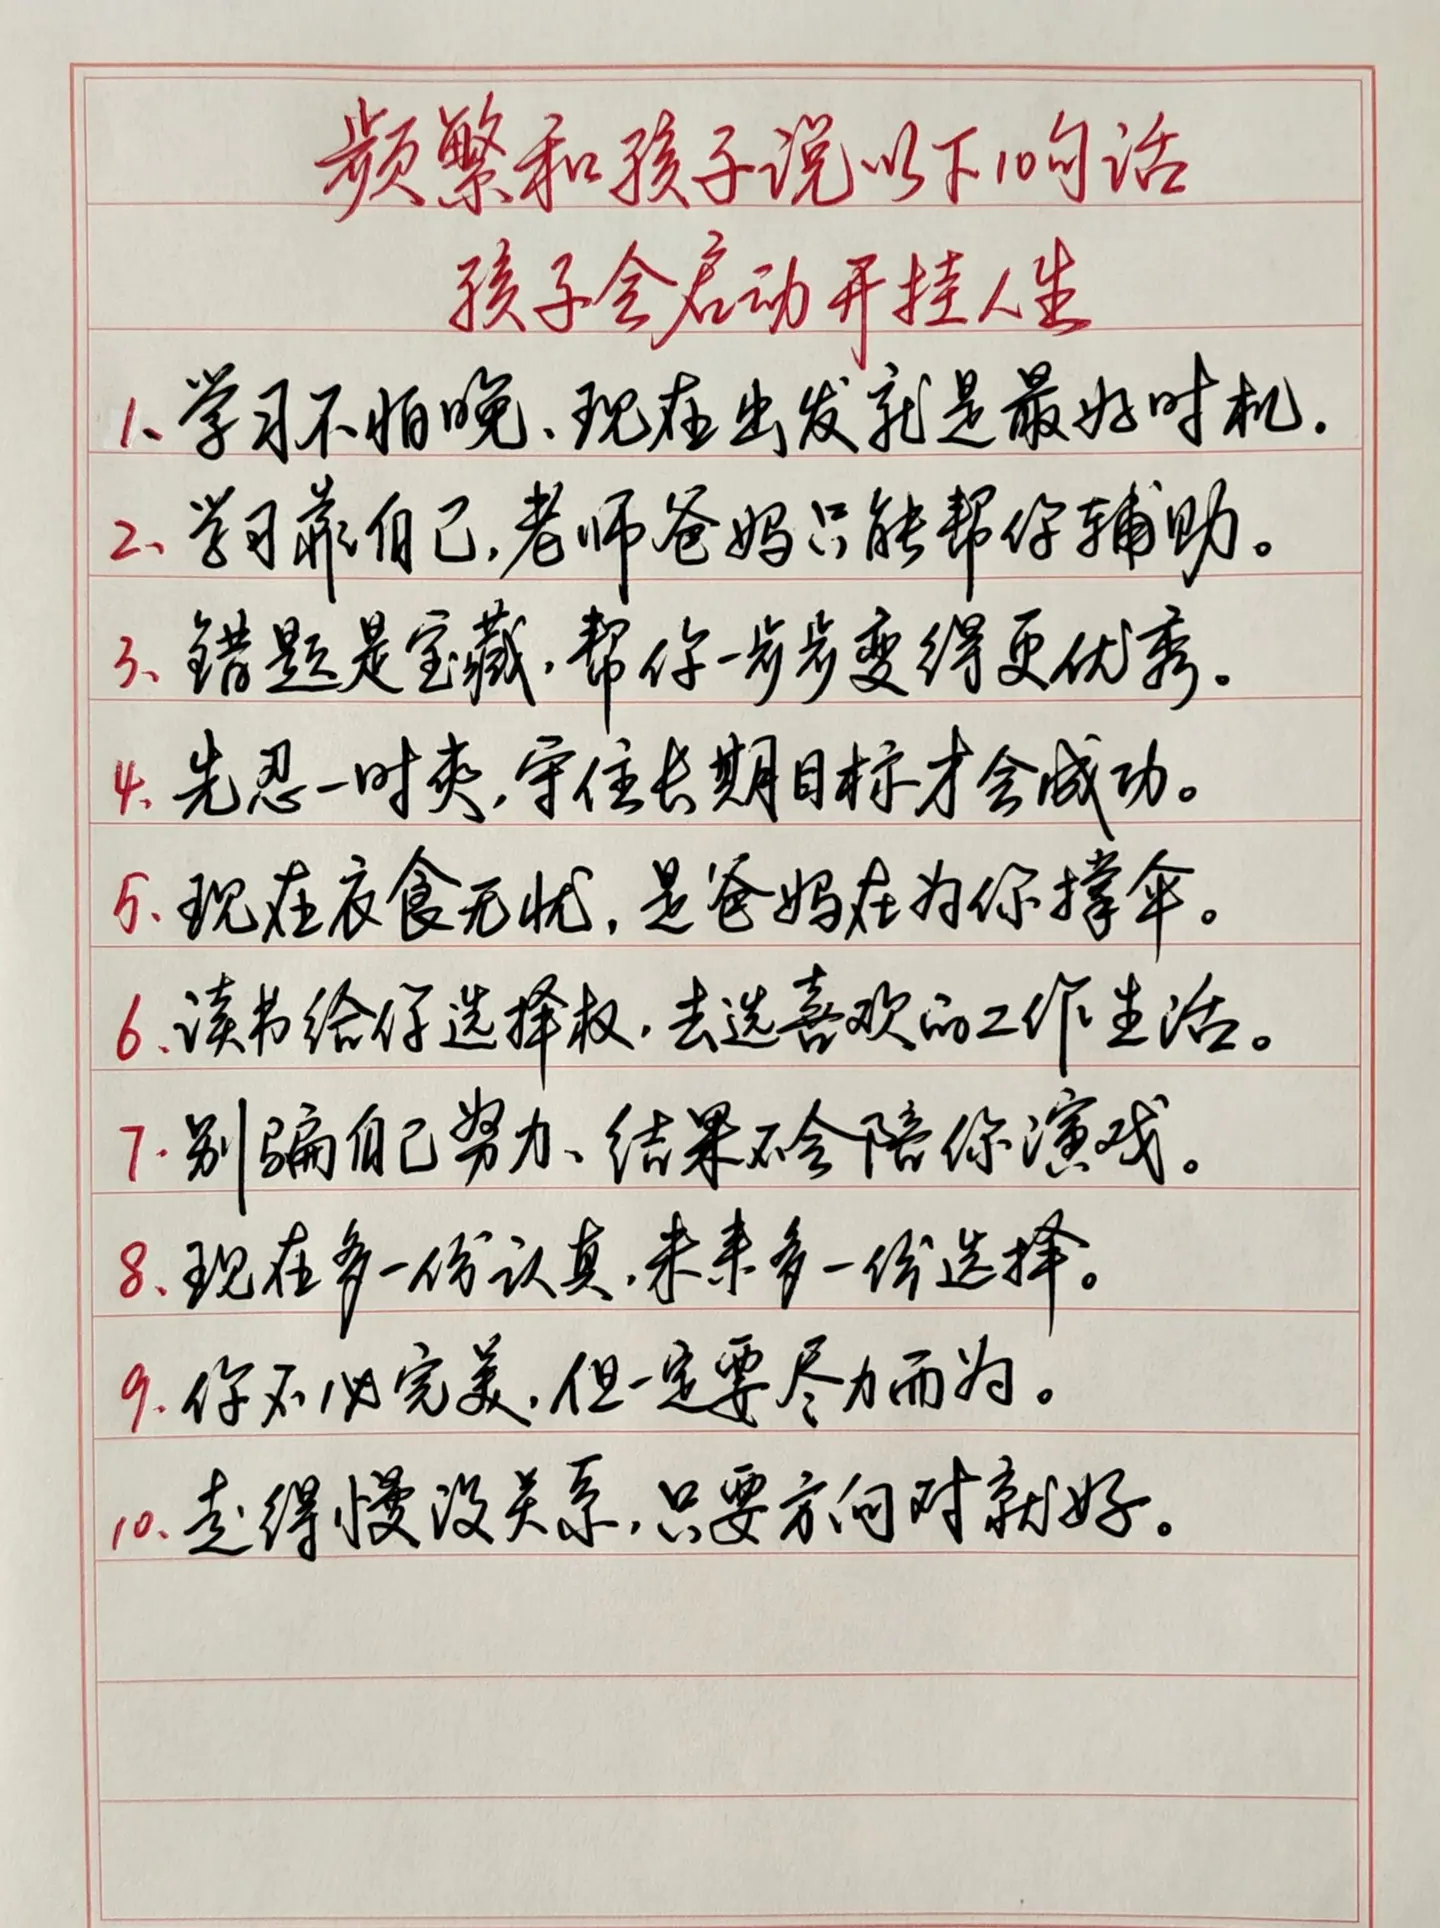 频繁和孩子说以下10句话
孩子会启动开挂人生
1、学习不怕晚、现在出发就是最好时机.
2、学习靠自己,老师爸妈只能帮你辅助。
3、错题是宝藏,帮你一步步变得更优秀。
4、先忍一时爽,守住长期目标才会成功。
5、现在衣食无忧,是爸妈在为你撑伞。
6、读书给你选择权,去选喜欢的工作生活。
7.别骗自己努力、结果不会陪你演戏。
8、现在多一份认真,未来多一份选择。
9.你不必完美,但一定要尽力而为。
10、走得慢没关系,只要方向对就好。